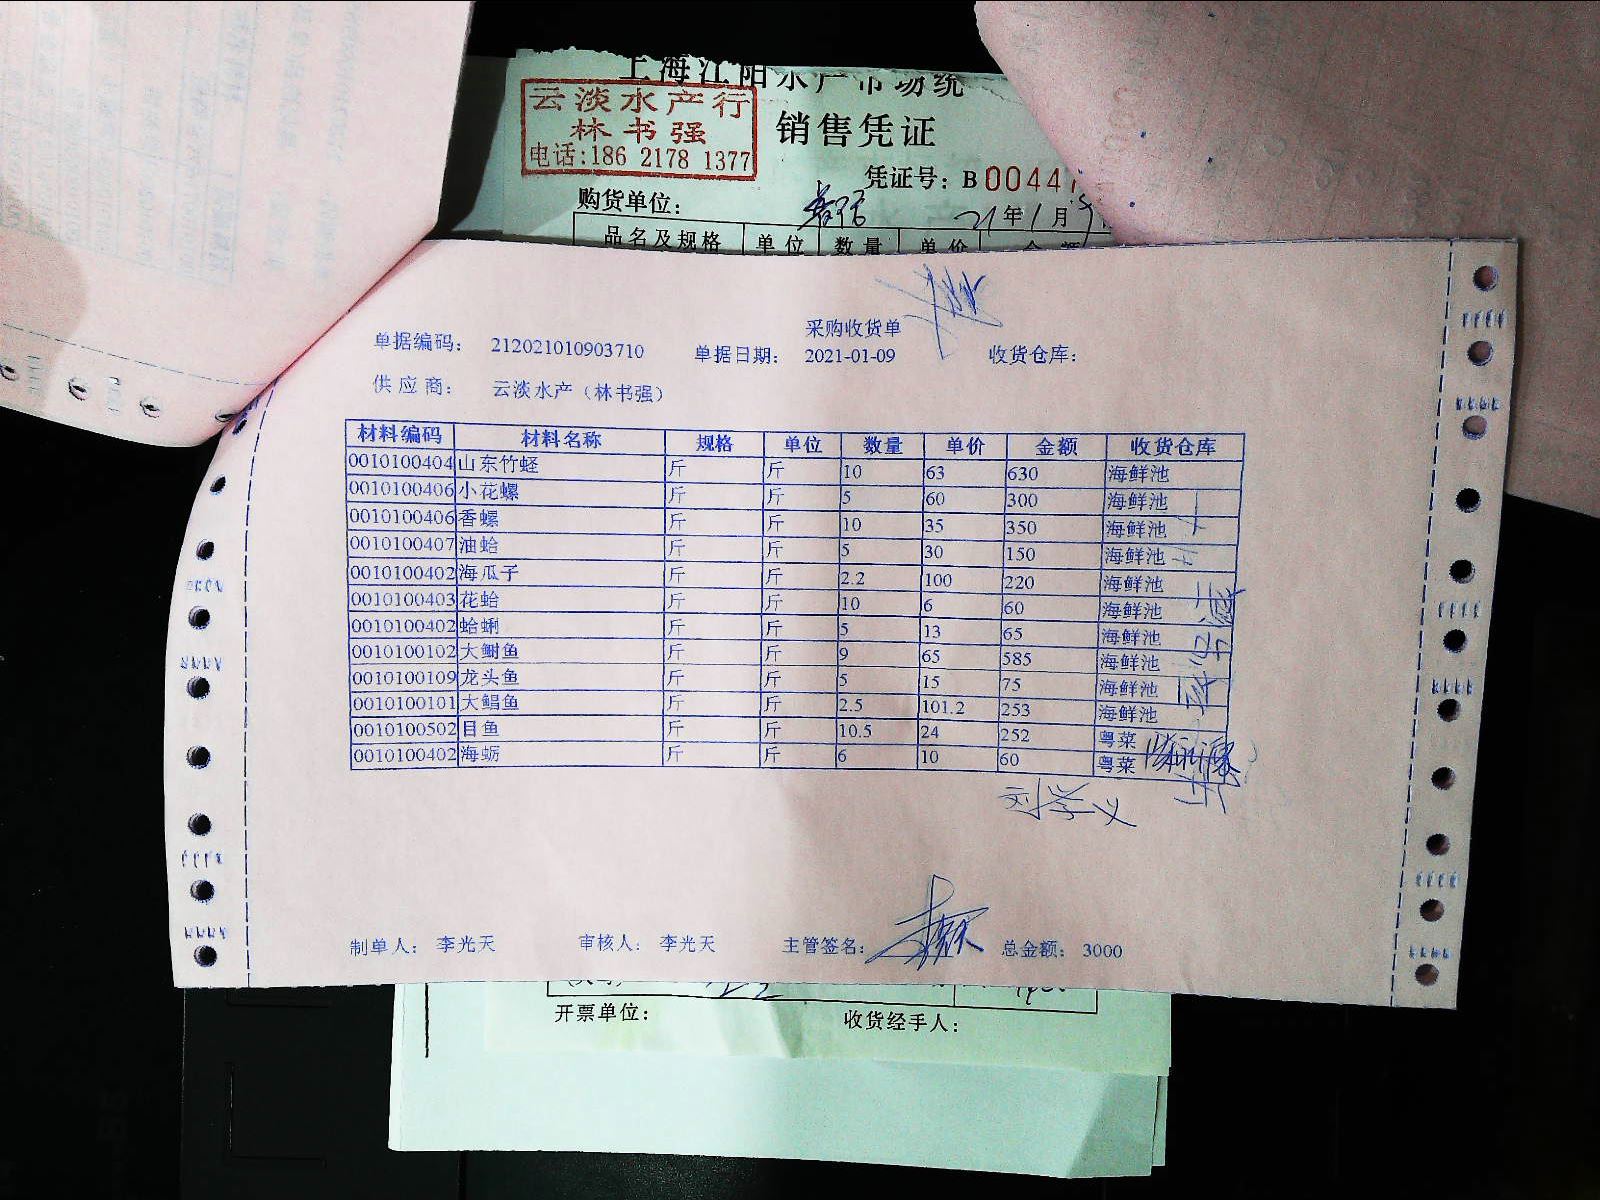 上海江阳水产市场统
云淡水产行
林书强
电话:186 2178 1377
销售凭证
凭证号: B 00447
购货单位:
21年1月9
品名及规格 单位 数量 单价 金额
采购收货单
单据编码: 212021010903710 单据日期: 2021-01-09 收货仓库:
供应商: 云淡水产（林书强）
材料编码 材料名称 规格 单位 数量 单价 金额 收货仓库
0010100404 山东竹蛏 斤 斤 10 63 630 海鲜池
0010100406 小花螺 斤 斤 5 60 300 海鲜池
0010100406 香螺 斤 斤 10 35 350 海鲜池
0010100407 油蛤 斤 斤 5 30 150 海鲜池
0010100402 海瓜子 斤 斤 2.2 100 220 海鲜池
0010100403 花蛤 斤 斤 10 6 60 海鲜池
0010100402 蛤蜊 斤 斤 5 13 65 海鲜池
0010100102 大鲥鱼 斤 斤 9 65 585 海鲜池
0010100109 龙头鱼 斤 斤 5 15 75 海鲜池
0010100101 大鲳鱼 斤 斤 2.5 101.2 253 海鲜池
0010100502 目鱼 斤 斤 10.5 24 252 粤菜
0010100402 海蛎 斤 斤 6 10 60 粤菜
刘学义
制单人: 李光天 审核人: 李光天 主管签名: 总金额: 3000
开票单位: 收货经手人: